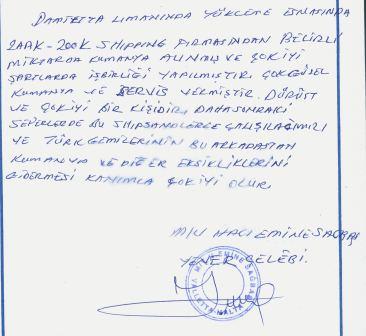 DAMIETTA LIMANINDA YÜKLEME ESNASINDA
ZAAK-ZOOK SHIPPING FIRMASINDAN BELIRLI
MIKTARDA KUMANYA ALINMIŞ VE ÇOK IYI
ŞARTLARDA IŞBIRLIĞI YAPILMIŞTIR ÇOK GÜZEL
KUMANYA VE SERVIS VERMIŞTIR. DÜRÜST
VE ÇOK IYI BIR KIŞIDIR. DAHA SONRAKI
SEFERLERDE BU SHIPSANDLERLE ÇALIŞILACAĞIMIZI
VE TÜRK GEMILERININ BU ARKADAŞTAN
KUMANYA VE DIĞER EKSIKLIKLERINI
GIDERMESI KANIMCA ÇOK IYI OLUR.
M/V HACI EMINE SAĞBAŞ
YENER ÇELEBI.
EMINE SAĞBAŞ
VALLETTA-MALTA